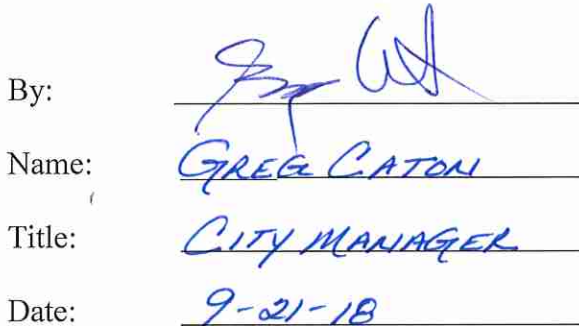 By:
Name: GREG CATON
Title: CITY MANAGER
Date: 9-21-18